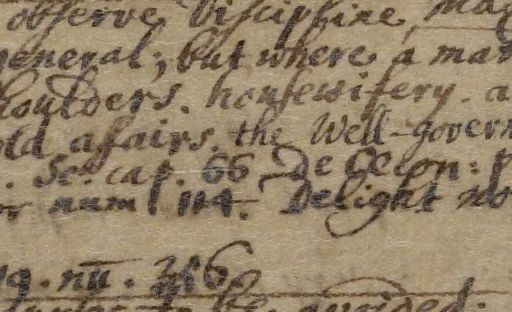 observe discipline, may
general; but where a man
shoulders. housewifery. a
old afairs. the Well-govern
. Sc. cap. 66 De Oecon: p
or num 114. Delight no
19. nū. 386
to be avoided.